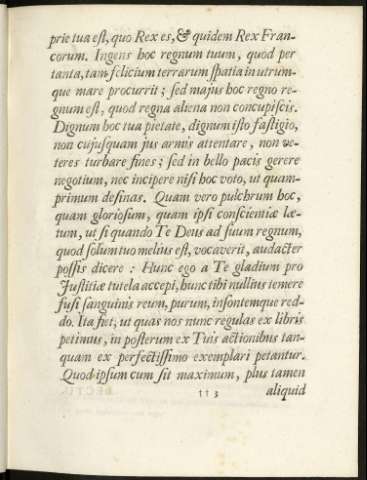 prie tua eſt, quo Rex es, & quidem Rex Fran-
corum. Ingens hoc regnum tuum, quod per
tanta, tam felicium terrarum ſpatia in utrum-
que mare procurrit; ſed majus hoc regno re-
gnum eſt, quod regna aliena non concupiſcis.
Dignum hoc tua pietate, dignum iſto faſtigio,
non cujuſquam jus armis attentare, non ve-
teres turbare fines; ſed in bello pacis gerere
negotium, nec incipere niſi hoc voto, ut quam-
primum deſinas. Quam vero pulchrum hoc,
quam glorioſum, quam ipſi conſcientiæ læ-
tum, ut ſi quando Te Deus ad ſuum regnum,
quod ſolum tuo melius eſt, vocaverit, audacter
poſſis dicere: Hunc ego a Te gladium pro
Juſtitiæ tutela accepi, hunc tibi nullius temere
fuſi ſanguinis reum, purum, inſontemque red-
do. Ita fiet, ut quas nos nunc regulas ex libris
petimus, in poſterum ex Tuis actionibus tan-
quam ex perfectiſſimo exemplari petantur.
Quod ipſum cum ſit maximum, plus tamen
113 aliquid